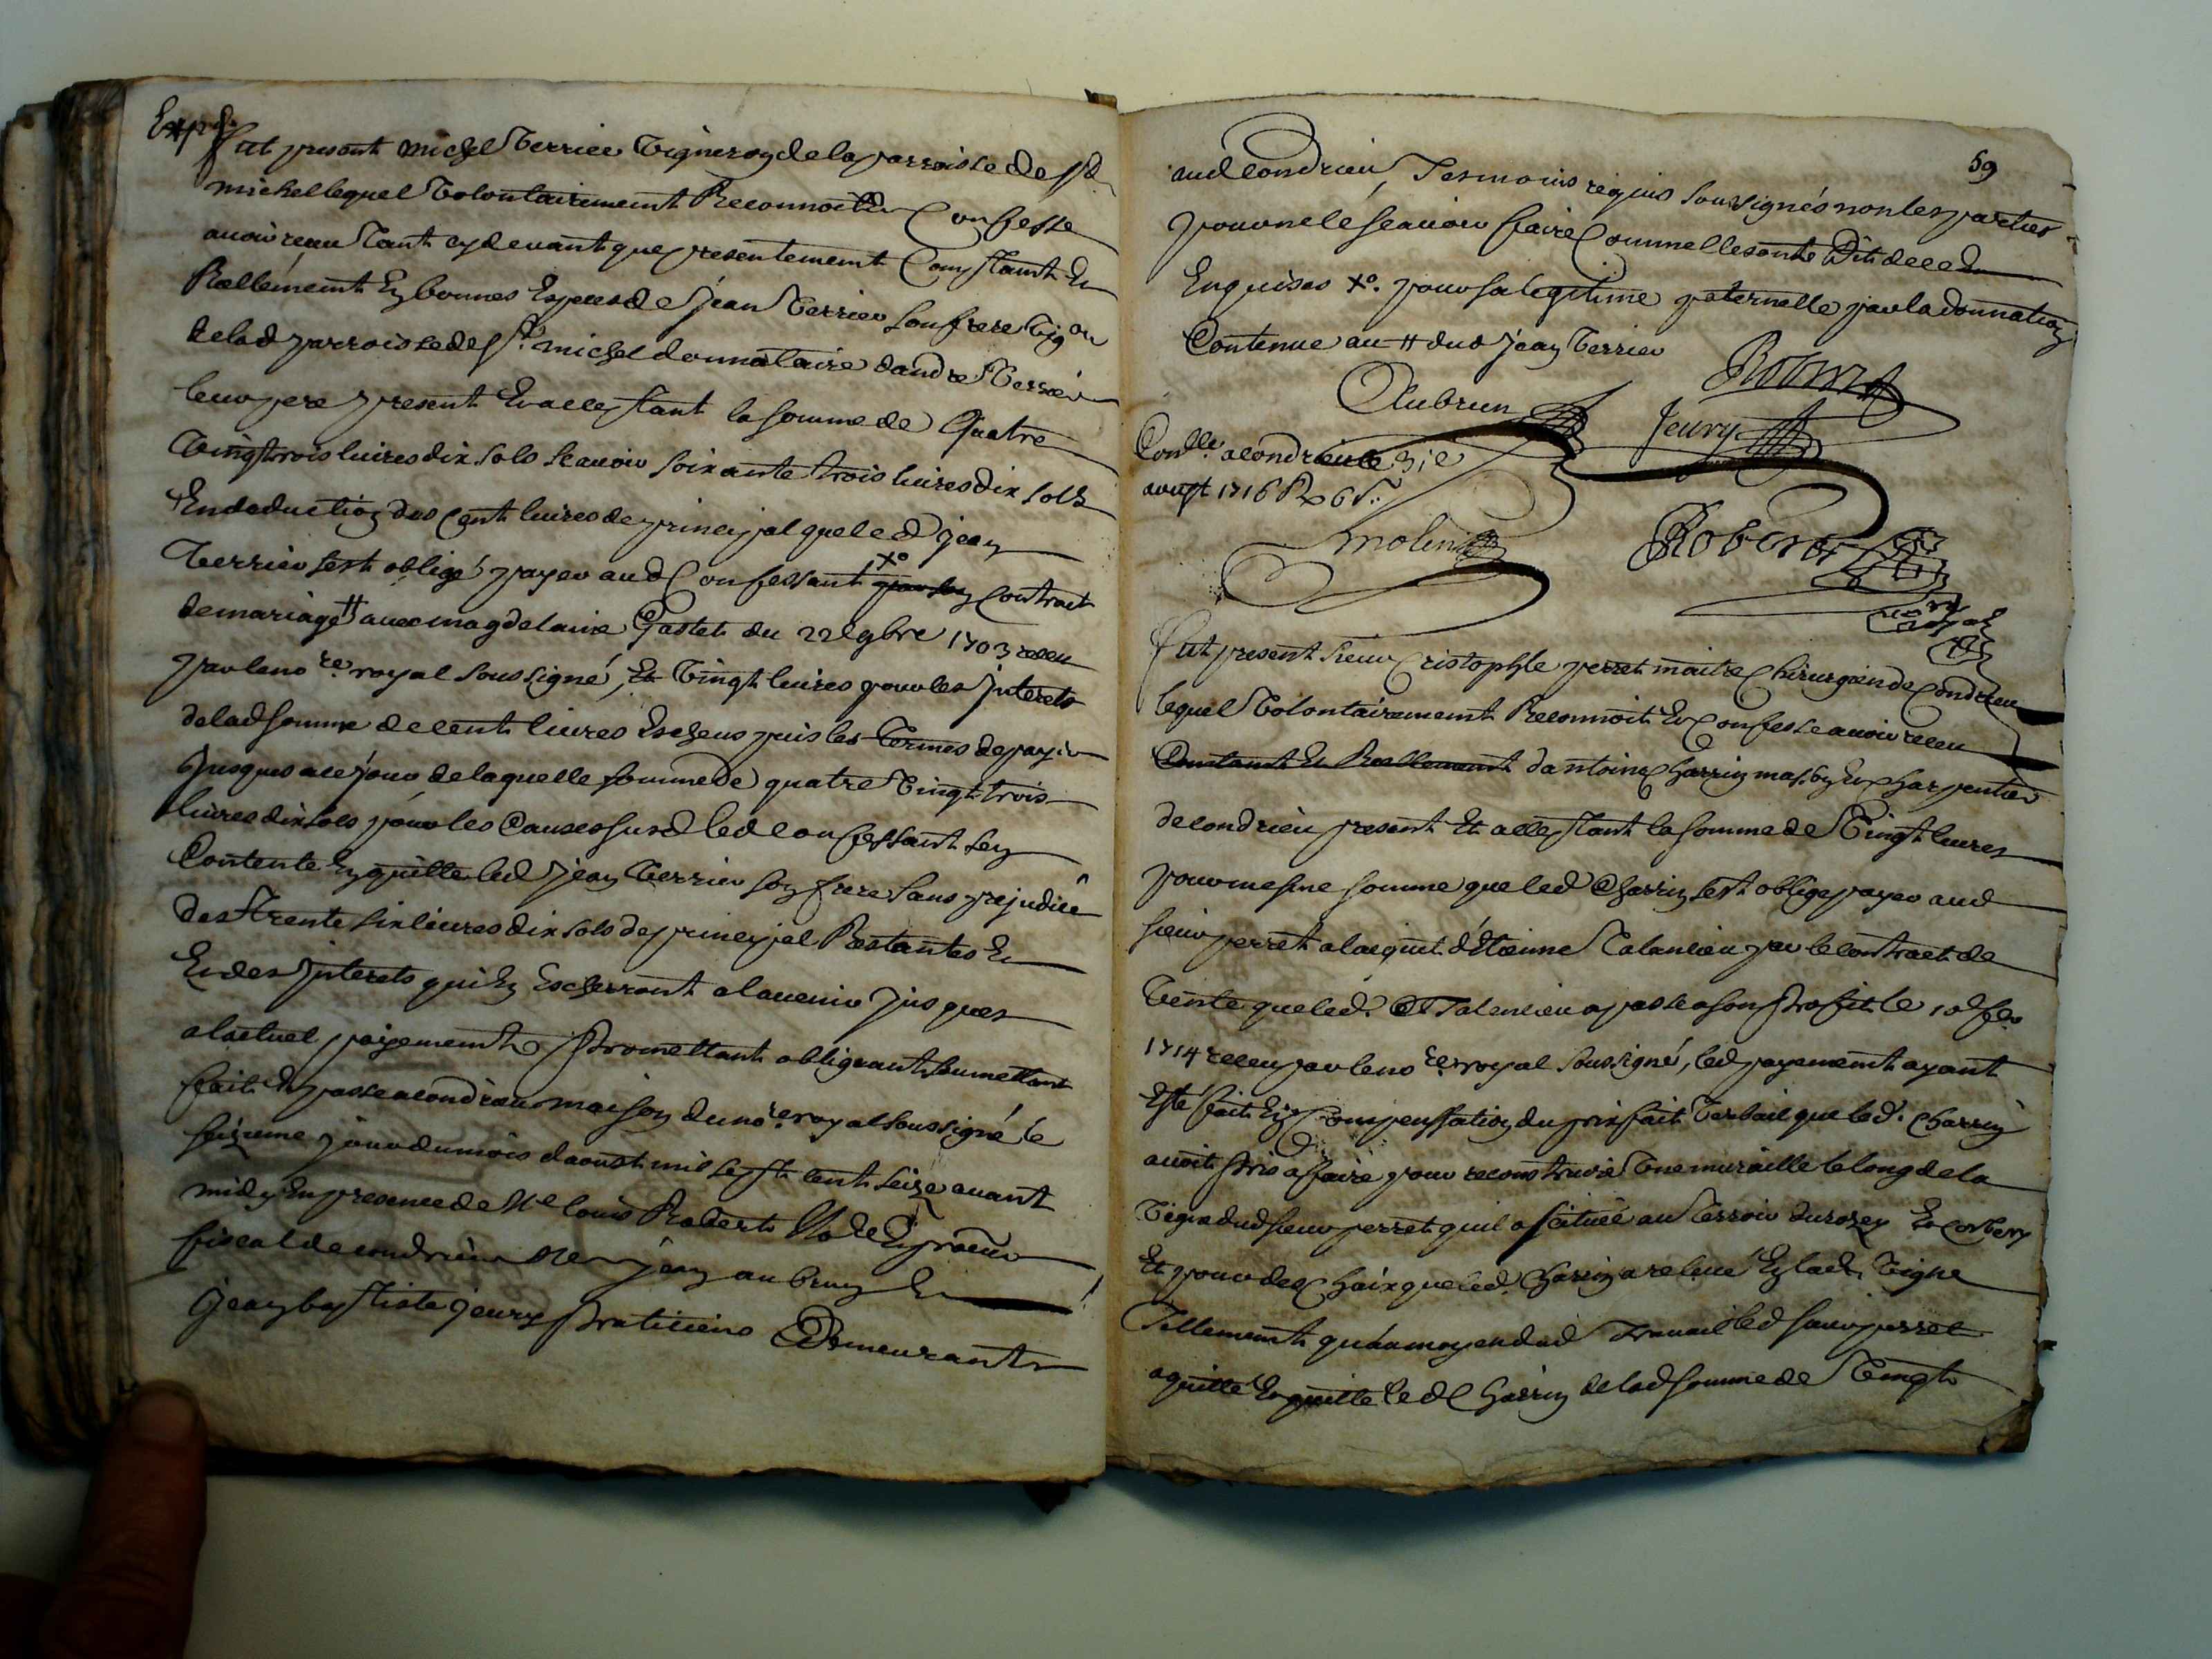 Exp.
Fut present michel Verrier Vigneron de la parroisse de St
michel lequel Volontairement Reconnoit Et Confesse
auoir receu Tant cy deuant que presentement Comptant Et
Reellement En bonnes Especes de Jean Verrier son frere Vig on
de lad parroisse de St michel donnataire dandré Verrier
leur pere present Et acceptant la somme de Quatre
Vingt trois liures dix sols scauoir soixante trois liures dix sols
En deduction des Cent liures de principal que led Jean
Verrier sest obligé payer aud Confessant x° par son Contract
de mariage # auec magdelaine Gastet du 22e 9bre 1703 receu
par le no re royal soussigné, Et Vingt liures pour les Interets
de lad somme de cent liures Escheus puis les Termes de payer
Jusques a ce jour de laquelle somme de quatre Vingt trois
liures dix sols pour les Causes susd led confessant sen
Contente En quitte led Jean Verrier son frere sans prejudice
des Trente six liures dix sols de principal Restantes Et
Et des Interets qui En Escherront a lauenir Jusques
a lactuel payement Promettant obligeant soumettant
fait Et passe a condrieu maison du no re royal soussigné le
seizieme jour du mois daoust mil sept cent seize auant
midy En presence de Me louis Robert No re Et procur
fiscal de condrieu Me jean aubrun Et
Jean baptiste Jeury Praticiens Demeurants
59
aud Condrieu, Tesmoins requis soussignés non les parties
pour ne le scauoir faire Comme elles ont Dit de ce
Enquises x°. pour sa legitime paternelle par la donnation
Contenue au # dud Jean Verrier
Aubrun
Robert
Jeury
Conlle a condrieu le 31e
aoust 1716 R 6 s.
molin
Robert
no re royal
Fut present sieur Cristophle perret maitre Chirurgien de Condrieu
lequel Volontairement Reconnoit Et Confesse auoir receu
Comtant Et Reellement dantoine Charrin masson Et charpentier
de condrieu present Et acceptant la somme de Vingt liures
pour mesme somme que led Charrin sest oblige payer aud
sieur perret a lacquit d'Etienne Talancieu par le contract de
Vente que led. Talancieu a passé a son Profit le
1714 receu par le no re royal soussigné, led payement ayant
Esté fait En Compensation du prixfait Verbail que led. Charrin
auoit Pris a faire pour reconstruire Une muraille le long de la
Vigne dud sieur perret quil a scituée au Terroir du rozey Et Corbery
Et pour des Chaix que led. Charrin a releué En lad. Vigne
Tellement qu'au moyen dud Trauail led sieur perret
a quitté Et quitte led Charrin de lad somme de Vingt